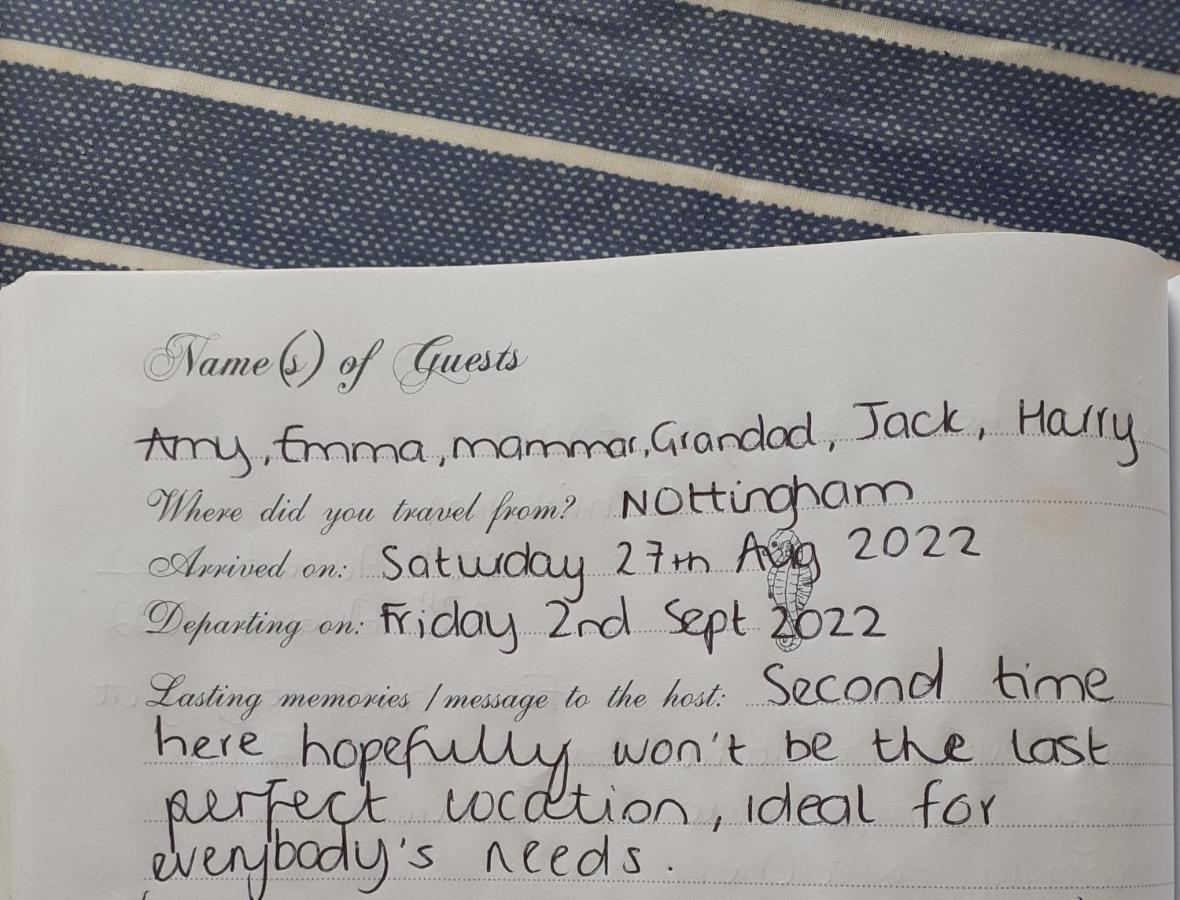 Name(s) of Guests
Amy, Emma, mammar, Grandad, Jack, Harry
Where did you travel from? Nottingham
Arrived on: Saturday 27th Aug 2022
Departing on: Friday 2nd Sept 2022
Lasting memories / message to the host: Second time
here hopefully won't be the last
perfect location, ideal for
everybody's needs.